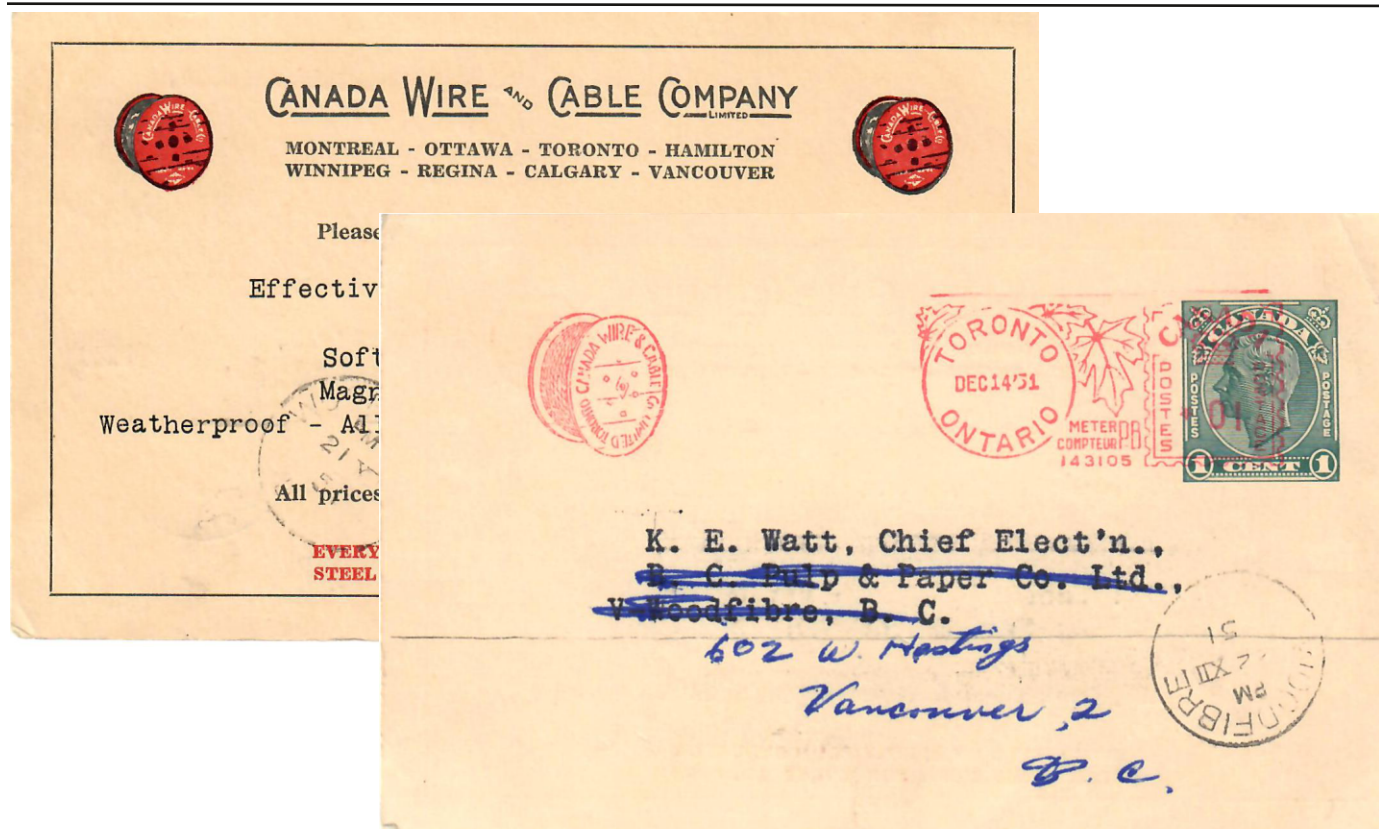 CANADA WIRE AND CABLE COMPANY
LIMITED
MONTREAL - OTTAWA - TORONTO - HAMILTON
WINNIPEG - REGINA - CALGARY - VANCOUVER
Please
Effectiv
Soft
Magn
Weatherproof - All
All prices
EVERY
STEEL
CANADA WIRE & CABLE Co. LIMITED TORONTO
TORONTO
DEC 14'51
ONTARIO
METER
COMPTEUR PB
143105
POSTES
CANADA
01
CANADA
POSTES POSTAGE
1 CENT 1
K. E. Watt, Chief Elect'n.,
B. C. Pulp & Paper Co. Ltd.,
Woodfibre, B. C.
602 W. Hastings
Vancouver, 2
B. C.
WOODFIBRE
PM
XII
51
AM
21